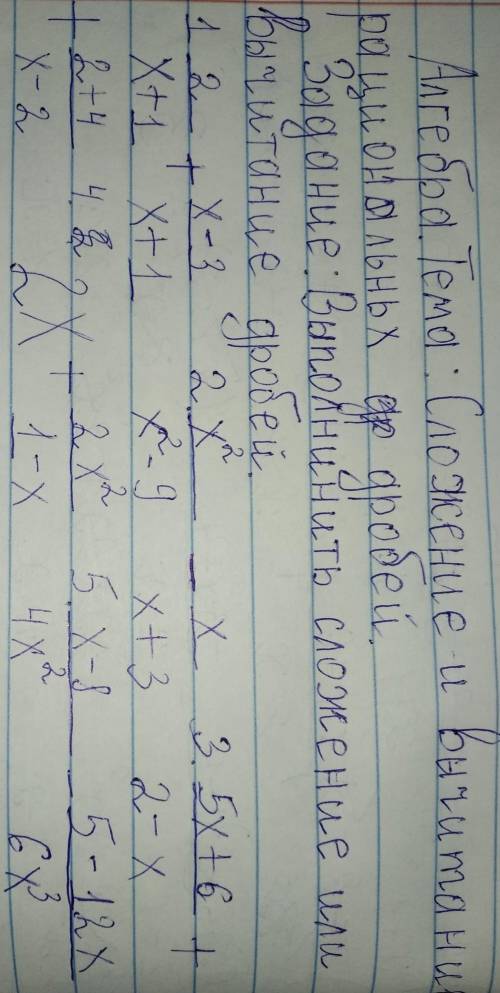 Алгебра. Тема: Сложение и вычитани
рациональных др дробей.
Задание: Выполнинить сложение или
вычитание дробей.
1 2/x+1 + x-3/x+1 2. x²/x²-9 - x/x+3 3. 5x+6/2-x +
+ 2+4/x-2 4. 2x + 2x²/1-x 5. x-8/4x² - 5-12x/6x³